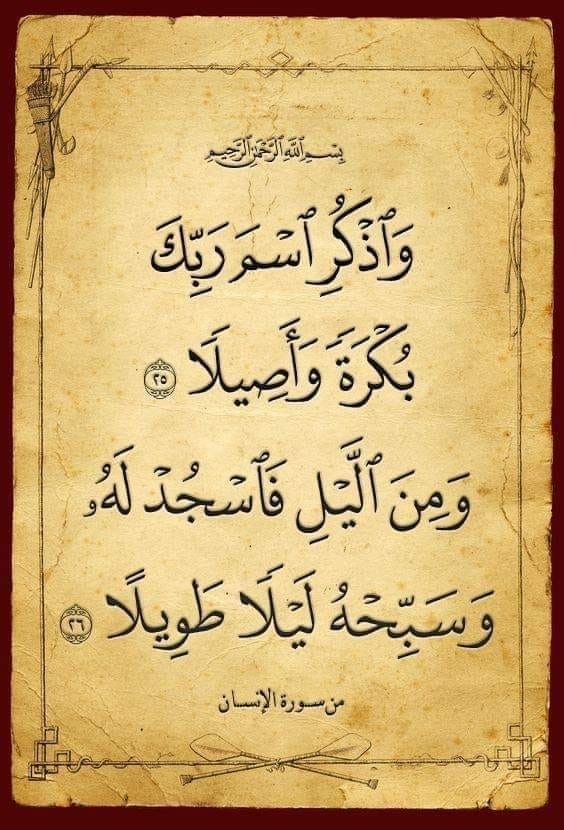 بِسْمِ ٱللَّهِ ٱلرَّحْمَٰنِ ٱلرَّحِيمِ
وَٱذْكُرِ ٱسْمَ رَبِّكَ
بُكْرَةً وَأَصِيلًا ٢٥
وَمِنَ ٱلَّيْلِ فَٱسْجُدْ لَهُۥ
وَسَبِّحْهُ لَيْلًا طَوِيلًا ٢٦
من سورة الإنسان